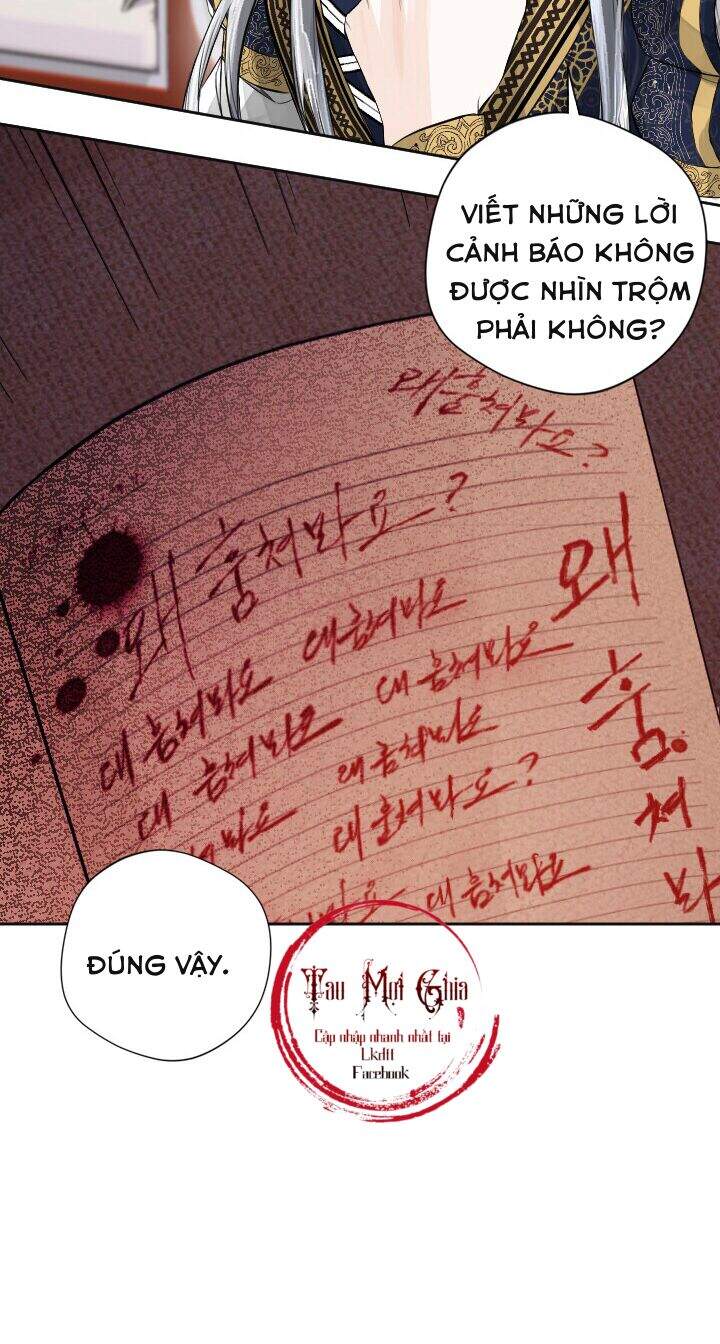 VIẾT NHỮNG LỜI
CẢNH BÁO KHÔNG
ĐƯỢC NHÌN TRỘM
PHẢI KHÔNG?
왜 훔쳐봐요?
왜 훔쳐봐요?
왜
훔
쳐
봐
왜 훔쳐봐요
왜 훔쳐봐요
왜 훔쳐봐요
왜 훔쳐봐요
왜 훔쳐봐요
쳐봐요
왜 훔쳐봐요?
왜 훔쳐봐요
ĐÚNG VẬY.
Tau Mọt Ghia
Cập nhập nhanh nhất tại
Lkdtt
Facebook